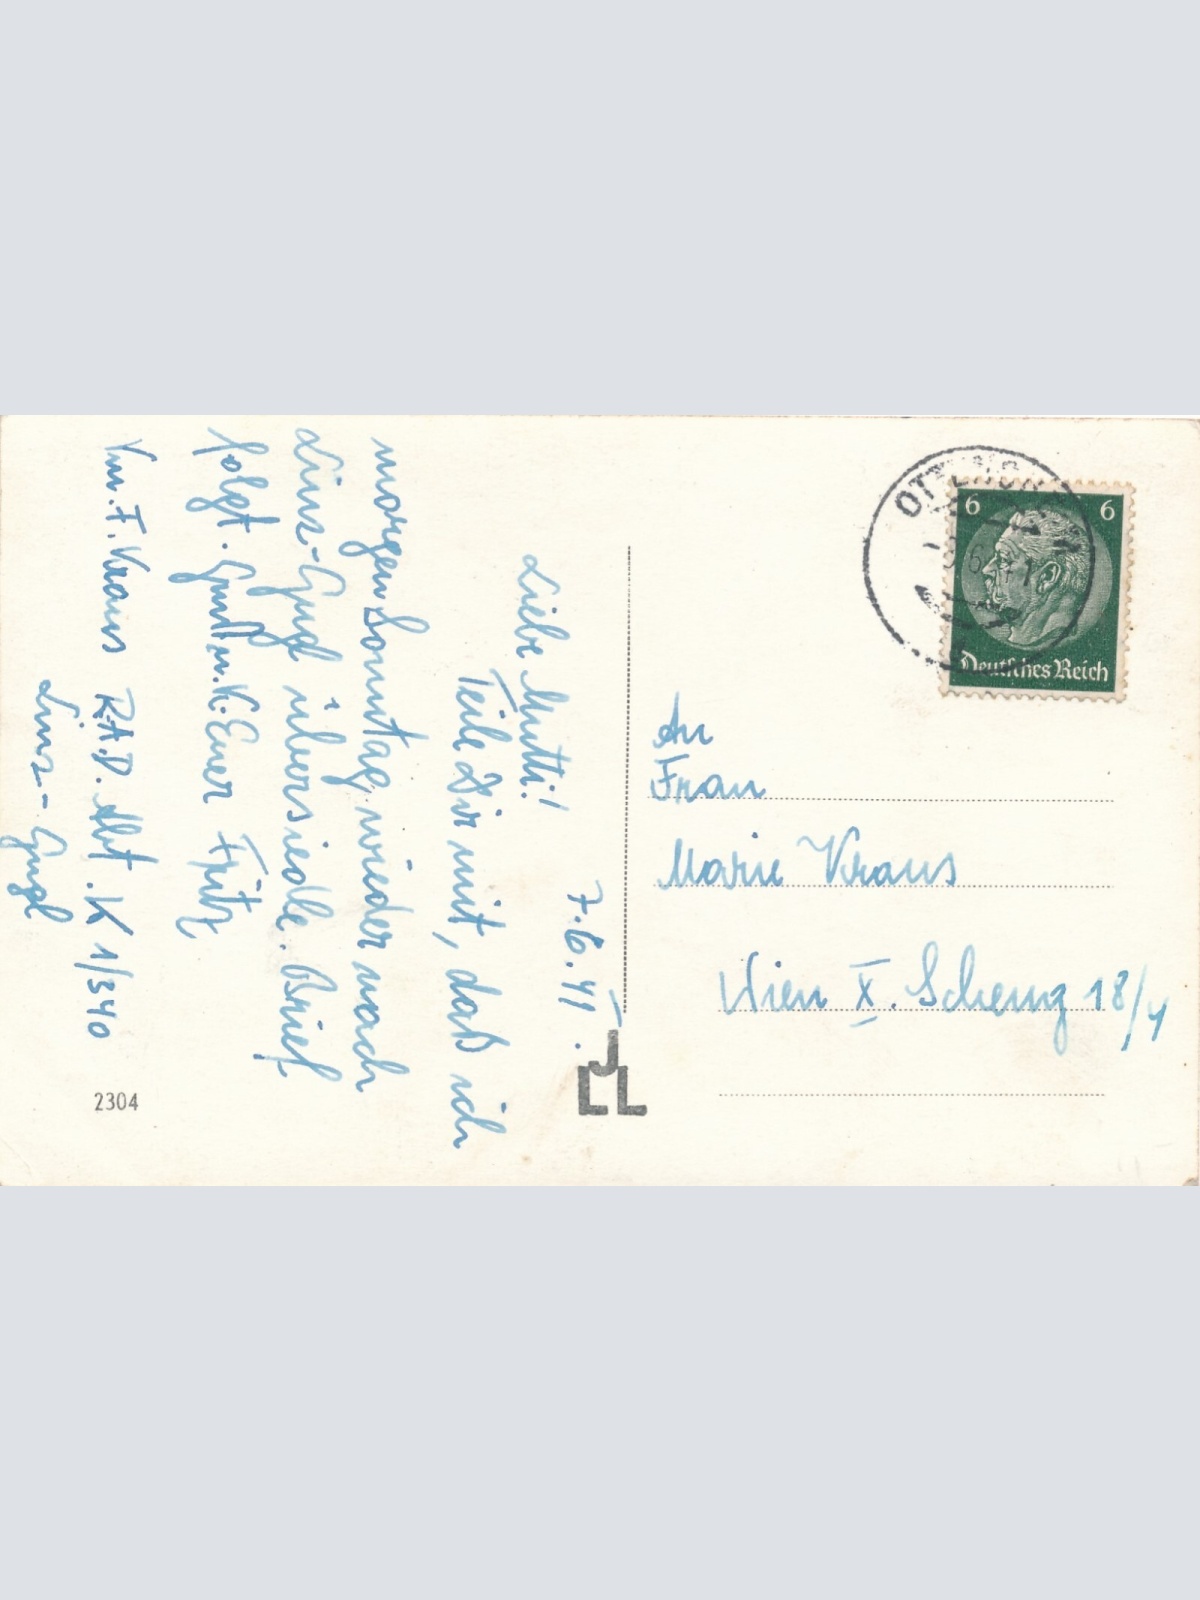 7.6.41.
Liebe Mutti!
Teile Dir mit, daß ich
morgen Sonntag wieder nach
Linz-Gugl übersiedle. Brief
folgt. Gruß u. K. Euer Fritz
Vm. F. Kraus R.A.D. Abt. K 1/340
Linz-Gugl
2304
JLL
6 6
Deutsches Reich
An
Frau
Marie Kraus
Wien X. Schemg 18/4